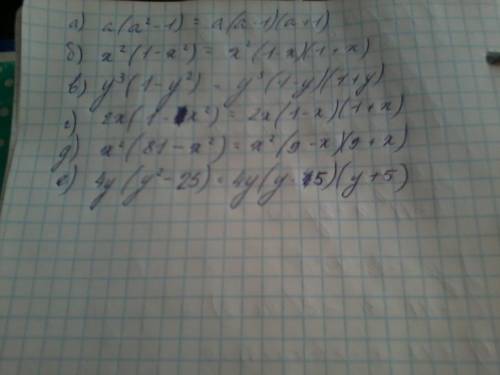 а) a(a²-1) = a(a-1)(a+1)
б) x²(1-x²) = x²(1-x)(1+x)
в) y³(1-y²) = y³(1-y)(1+y)
г) 2x(1-x²) = 2x(1-x)(1+x)
д) x²(81-x²) = x²(9-x)(9+x)
е) 4y(y²-25) = 4y(y-5)(y+5)